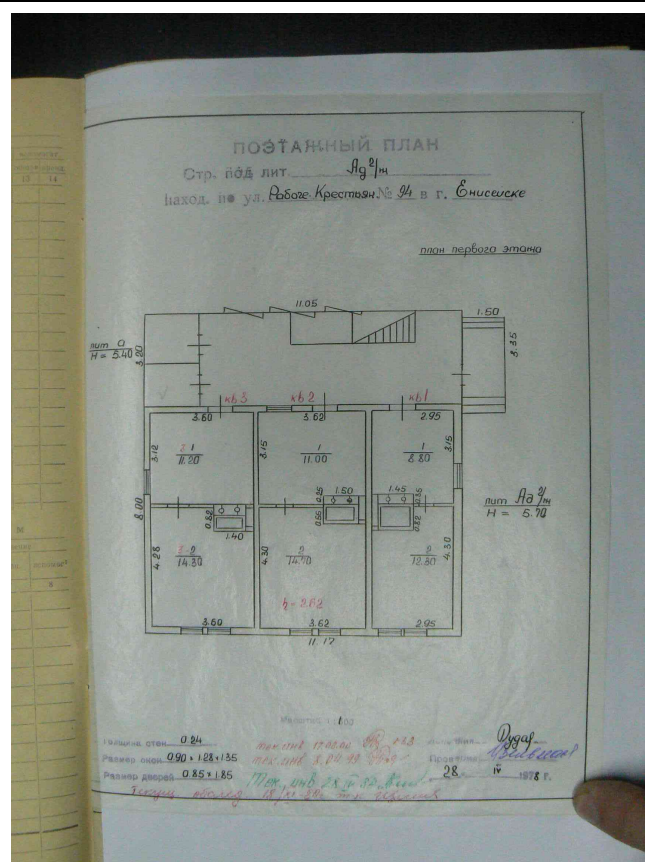 ПОЭТАЖНЫЙ ПЛАН
Стр. под лит. Ад2/ж
наход. по ул. Рабоче-Крестьян. № 94 в г. Енисейске
план первого этажа
11.05
1.50
лит а
H = 5.40
3.20
3.35
кв3 кв2 кв1
3.60 3.62 2.95
3.12 3.15 3.15
1
11.20
1
11.00
1
8.80
лит Ад2/ж
H = 5.70
8.00
0.82
1.40
0.25
1.50
0.55
1.45
0.35
0.82
4.28
2
14.30
4.30
2
14.70
2
12.30
4.30
h - 2.62
3.60 3.62 2.95
11.17
Масштаб 1:100
Толщина стен 0.24
Размер окон 0.90 × 1.28 × 1.35
Размер дверей 0.85 × 1.85
Дудар
28 IV 1978 г.